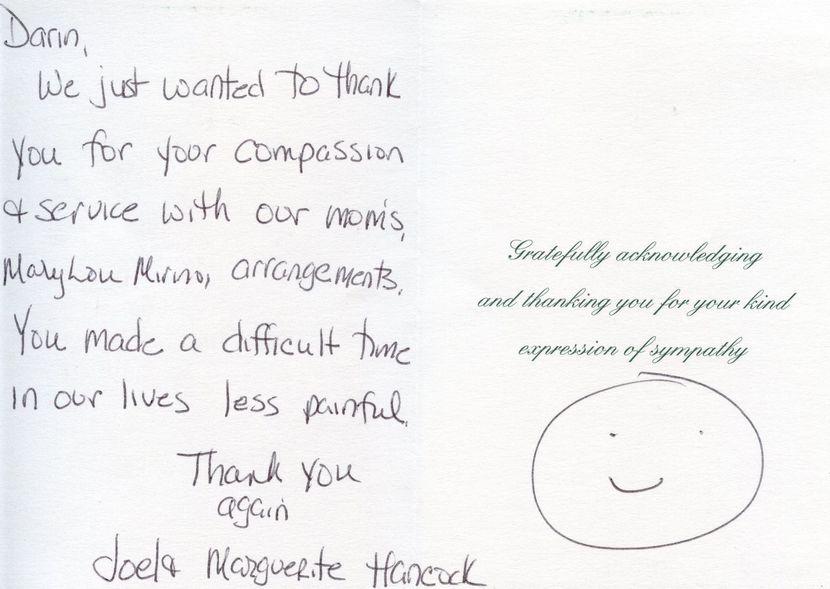 Darin,
We just wanted to thank
you for your compassion
& service with our mom's,
MaryLou Mirino, arrangements.
You made a difficult time
in our lives less painful.
Thank you
again
Joel & Marguerite Hancock
Gratefully acknowledging
and thanking you for your kind
expression of sympathy